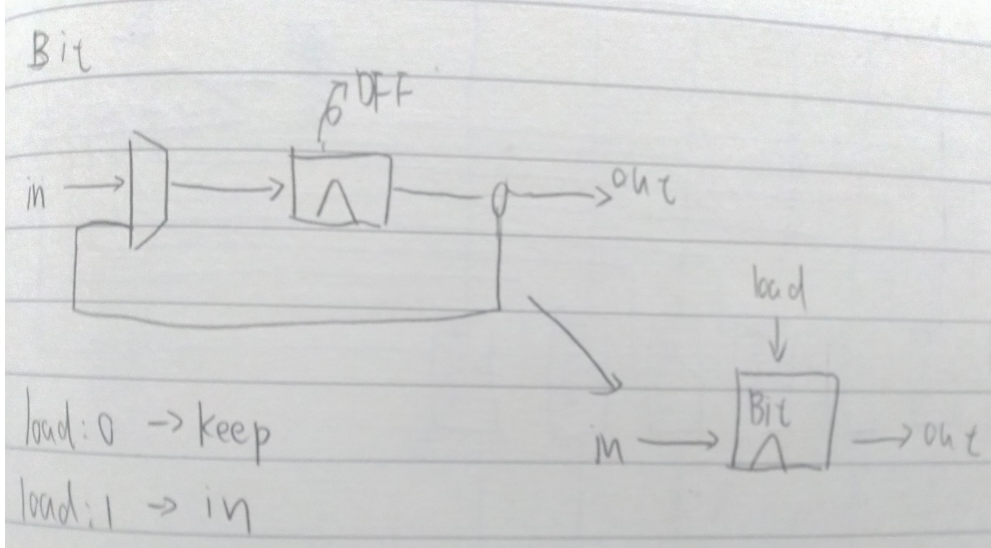 Bit
DFF
in
out
load
Bit
in
out
load: 0 -> keep
load: 1 -> in